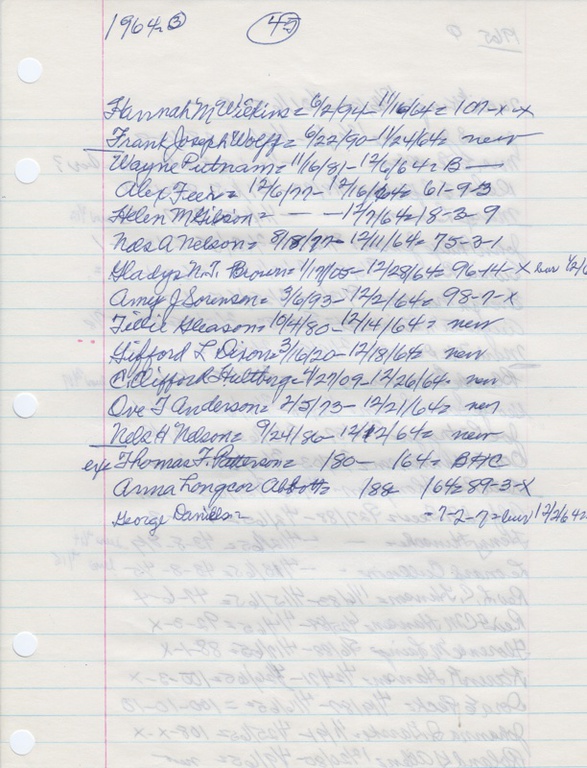 1964 ③ 42
Hannah M Wilkins = 6/2/94 - 11/16/64 = 107-x-x
Frank Joseph Wolff = 6/22/90 - 11/24/64 = new
Wayne Putnam = 11/6/81 - 12/6/64 = B —
Alex Feer = 12/6/77 - 12/16/64 = 61-9-3
Helen M Gibson = — — - 12/7/64 = 18-3-9
Nels A Nelson = 8/18/77 - 12/11/64 = 75-3-1
Gladys N.T. Brown = 1/17/05 - 12/28/64 = 96-14-x bur
Amy J Sorenson = 3/6/93 - 12/2/64 = 98-7-x
Tillie Gleason = 10/4/80 - 12/14/64 = new
Gifford L Dixon = 3/16/20 - 12/18/64 = new
C. Clifford Hultborg = 4/27/09 - 12/26/64 = new
Ove T Anderson = 2/5/73 - 12/21/64 = new
Nels H Nelson = 9/24/86 - 12/12/64 = new
Thomas F. Patterson = 180 - 164 = BHC
Anna Longcor Abbott = 188 164 = 89-3-x
George Daniels = - 7-2-7 = bur 12/2/64 =
1965